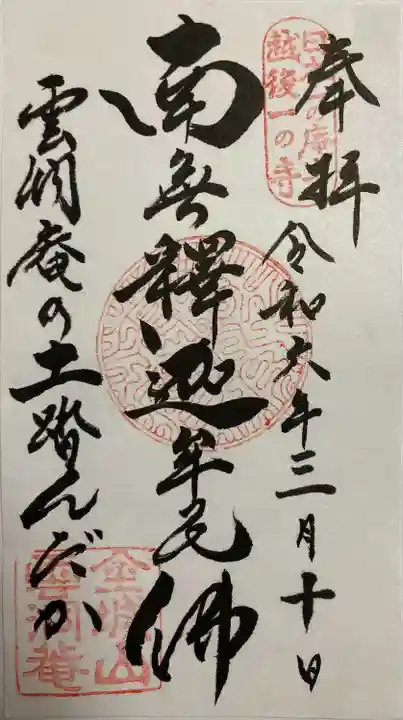 奉拝
令和六年三月十日
南無釋迦牟尼佛
雲洞庵の土踏んだか
越後一の寺
金城山
雲洞庵